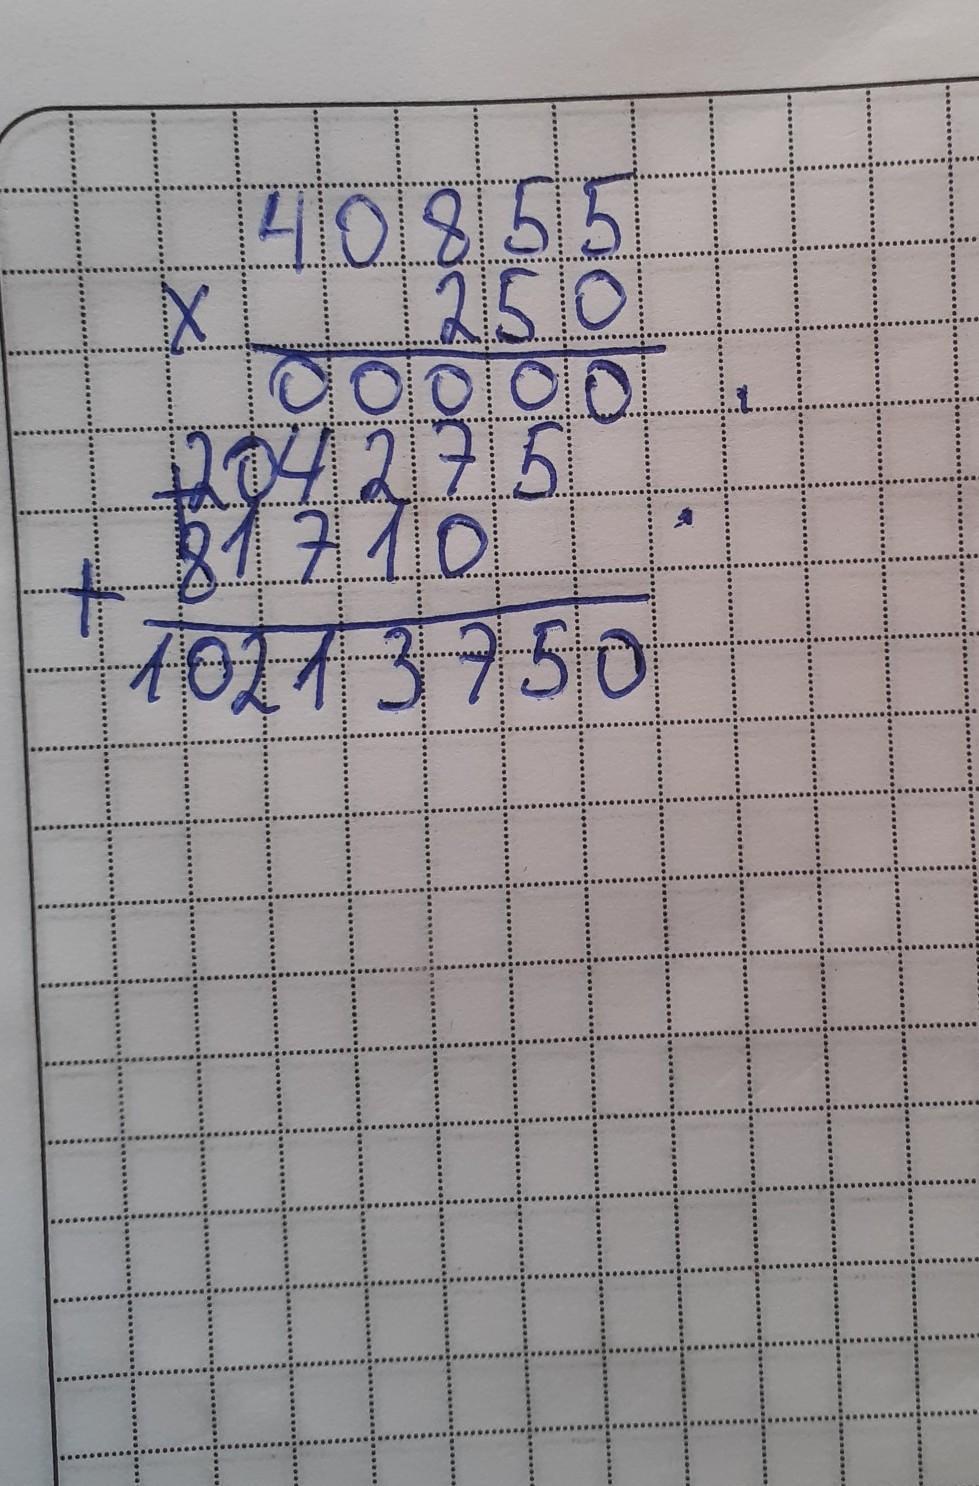 40855
x 250
00000
+204275
+ 81710
10213750